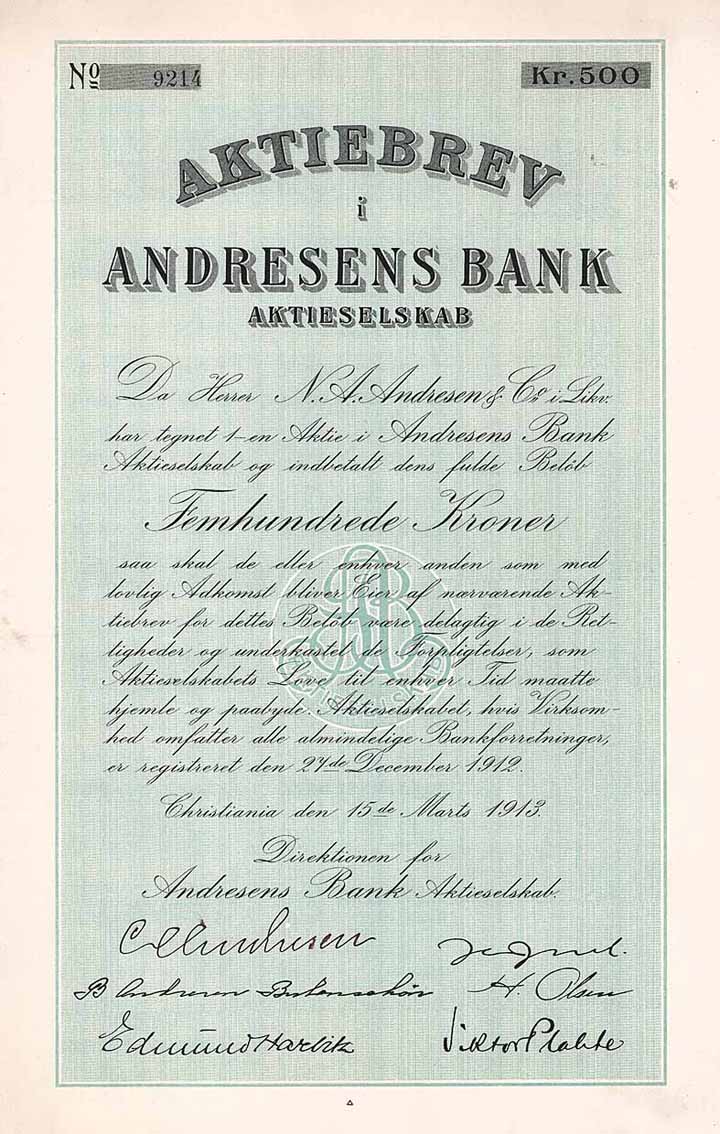 No 9214 Kr. 500
AKTIEBREV
i
ANDRESENS BANK
AKTIESELSKAB
Da Herrer N. A. Andresen & Co i Likv.
har tegnet 1-en Aktie i Andresens Bank
Aktieselskab og indbetalt dens fulde Beløb
Femhundrede Kroner
saa skal de eller enhver anden som med
lovlig Adkomst bliver Eier af nærværende Ak-
tiebrev for dettes Beløb være delagtig i de Ret-
tigheder og underkastet de Forpligtelser, som
Aktieselskabets Love til enhver Tid maatte
hjemle og paabyde. Aktieselskabet, hvis Virksom-
hed omfatter alle almindelige Bankforretninger,
er registreret den 27de December 1912.
Christiania den 15de Marts 1913.
Direktionen for
Andresens Bank Aktieselskab.
B Andresen Butenschøn H. Olsen
Edmund Harbitz Viktor Plahte